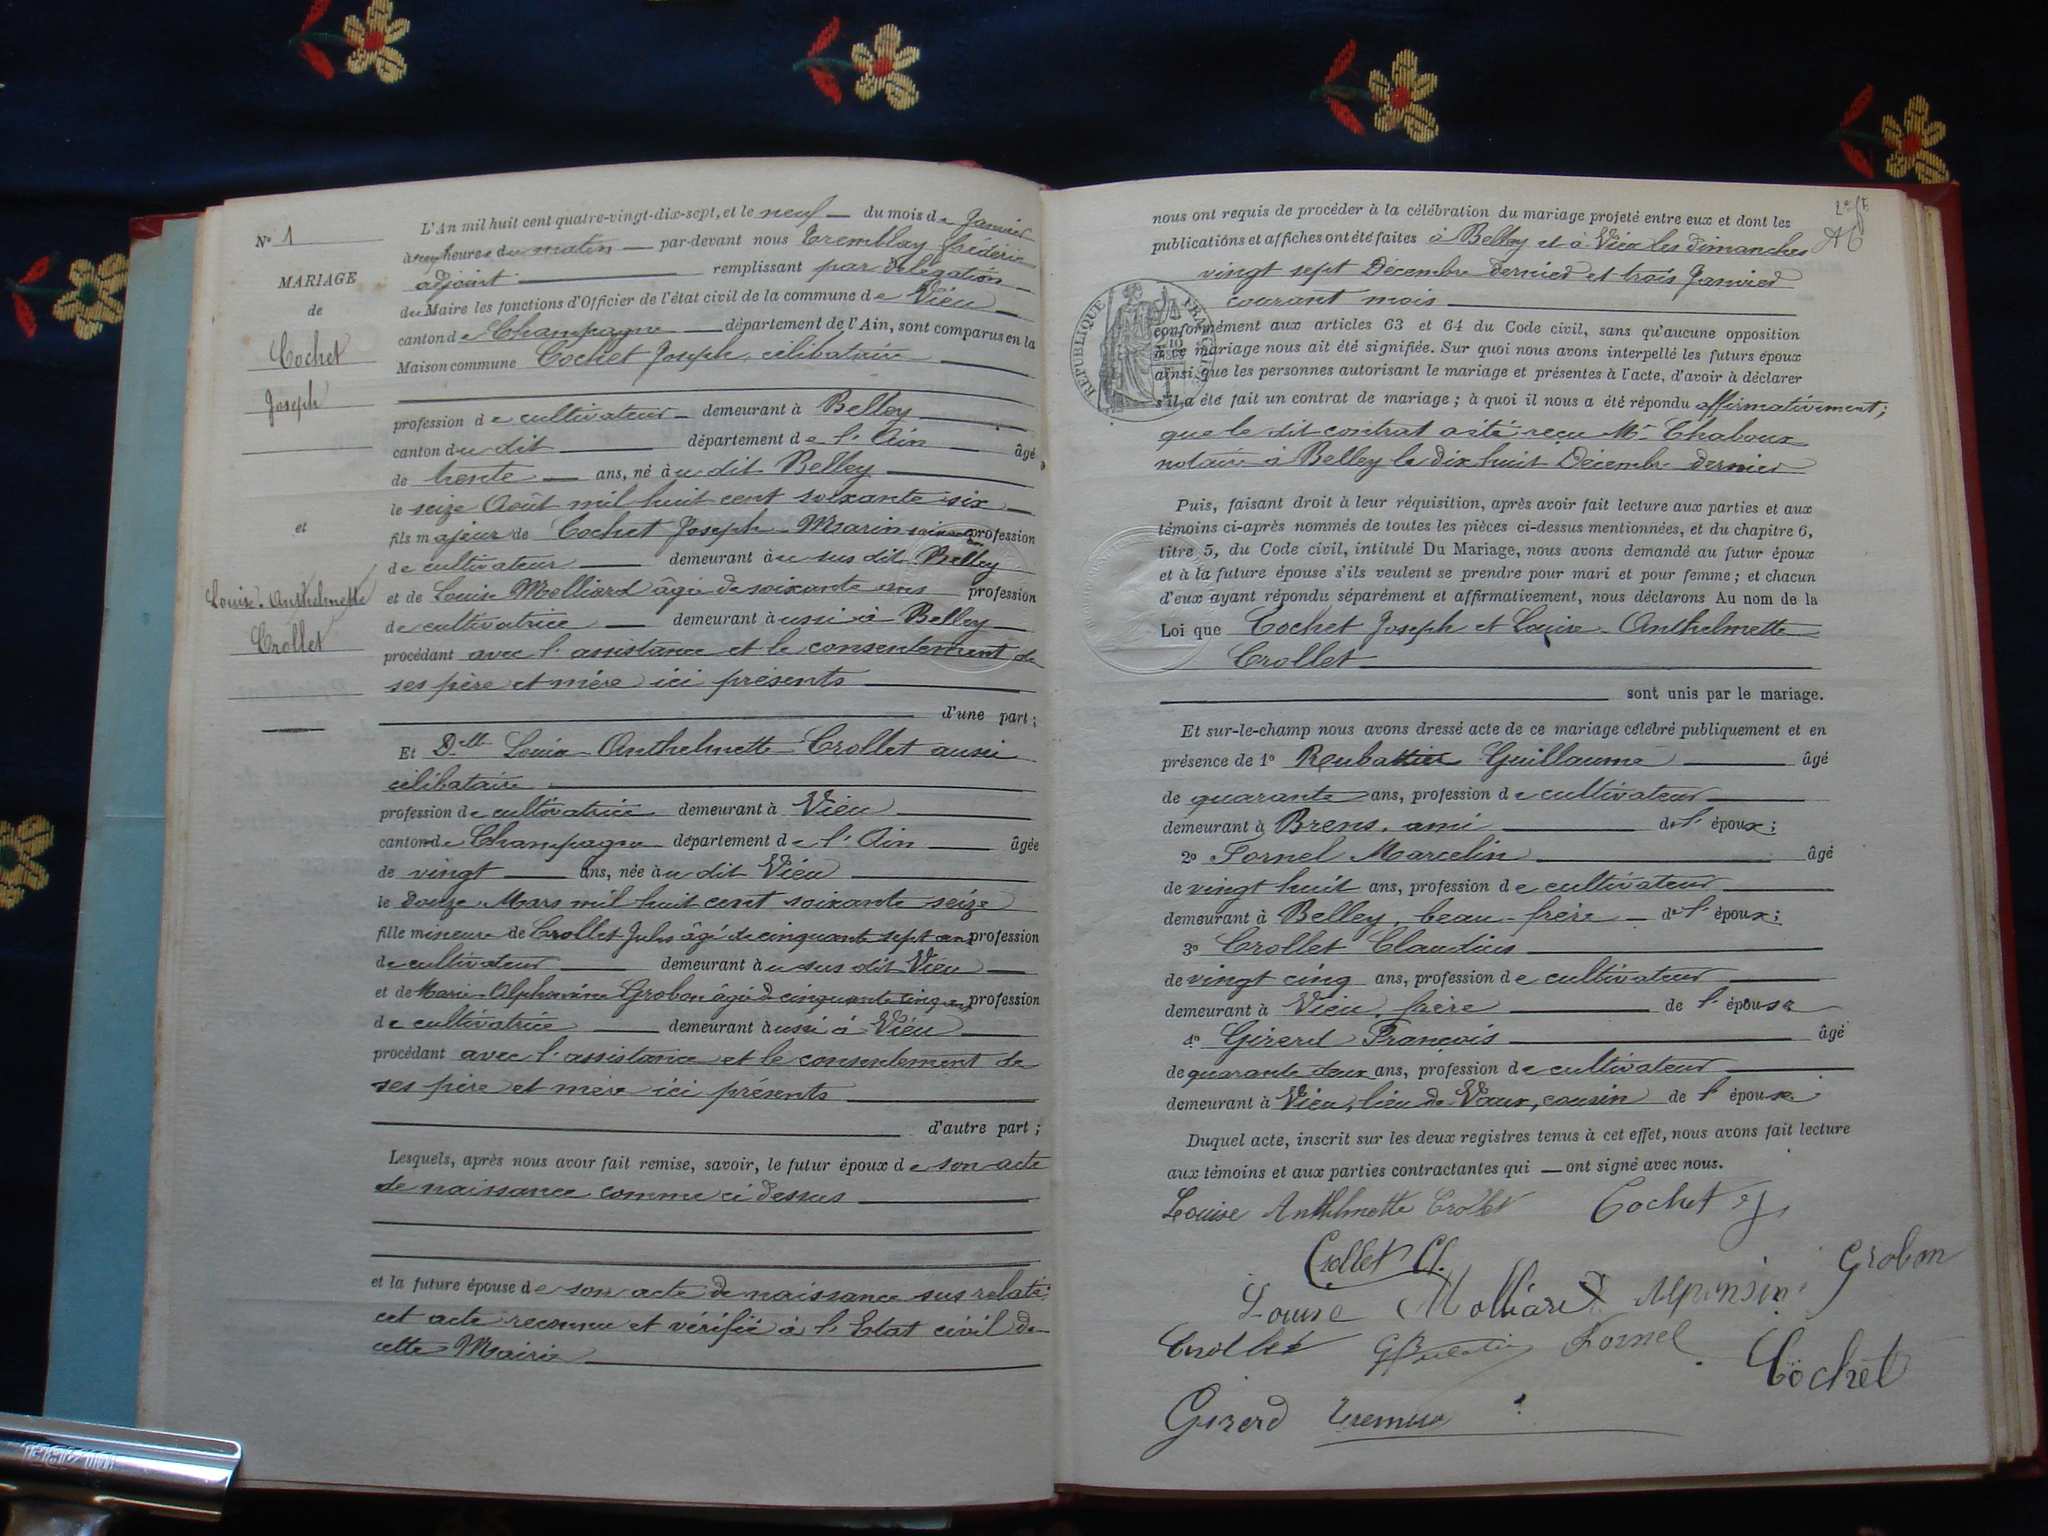 N° 1
MARIAGE
de
Cochet
Joseph
et
Louise-Anthelmette
Crollet
L'An mil huit cent quatre-vingt-dix-sept, et le neuf du mois de Janvier
à neuf heures du matin par-devant nous Tremblay frédéric
adjoint remplissant par délégation
du Maire les fonctions d'Officier de l'état civil de la commune de Vieu
canton de Champagne département de l'Ain, sont comparus en la
Maison commune Cochet Joseph, célibataire
profession de cultivateur demeurant à Belley
canton du dit département de l'Ain âgé
de trente ans, né au dit Belley
le seize Août mil huit cent soixante six
fils majeur de Cochet Joseph-Marin profession
de cultivateur demeurant au sus dit Belley
et de Louise Molliard âgée de soixante ans profession
de cultivatrice demeurant aussi à Belley
procédant avec l'assistance et le consentement de
ses père et mère ici présents
d'une part;
Et Delle Louise-Anthelmette Crollet aussi
célibataire
profession de cultivatrice demeurant à Vieu
canton de Champagne département de l'Ain âgée
de vingt ans, née au dit Vieu
le Douze Mars mil huit cent soixante seize
fille mineure de Crollet Jules âgé de cinquante sept ans profession
de cultivateur demeurant au sus dit Vieu
et de Marie-Alphonsine Grobon âgée de cinquante cinq ans profession
de cultivatrice demeurant aussi à Vieu
procédant avec l'assistance et le consentement de
ses père et mère ici présents
d'autre part;
Lesquels, après nous avoir fait remise, savoir, le futur époux de son acte
de naissance comme ci dessus
et la future épouse de son acte de naissance sus relaté;
cet acte reconnu et vérifié à l'Etat civil de
cette Mairie
nous ont requis de procéder à la célébration du mariage projeté entre eux et dont les
publications et affiches ont été faites à Belley et à Vieu les dimanches
vingt sept Décembre dernier et trois Janvier
courant mois
RÉPUBLIQUE FRANÇAISE
conformément aux articles 63 et 64 du Code civil, sans qu'aucune opposition
à ce mariage nous ait été signifiée. Sur quoi nous avons interpellé les futurs époux
ainsi que les personnes autorisant le mariage et présentes à l'acte, d'avoir à déclarer
s'il a été fait un contrat de mariage; à quoi il nous a été répondu affirmativement;
que le dit contrat a été reçu Me Chaboux
notaire à Belley le dix huit Décembre dernier
Puis, faisant droit à leur réquisition, après avoir fait lecture aux parties et aux
témoins ci-après nommés de toutes les pièces ci-dessus mentionnées, et du chapitre 6,
titre 5, du Code civil, intitulé Du Mariage, nous avons demandé au futur époux
et à la future épouse s'ils veulent se prendre pour mari et pour femme; et chacun
d'eux ayant répondu séparément et affirmativement, nous déclarons Au nom de la
Loi que Cochet Joseph et Louise-Anthelmette
Crollet
sont unis par le mariage.
Et sur-le-champ nous avons dressé acte de ce mariage célébré publiquement et en
présence de 1° Roubattier Guillaume âgé
de quarante ans, profession de cultivateur
demeurant à Brens, ami de l'époux;
2° Fornel Marcelin âgé
de vingt huit ans, profession de cultivateur
demeurant à Belley, beau-frère de l'époux;
3° Crollet Claudius
de vingt cinq ans, profession de cultivateur
demeurant à Vieu, frère de l'épouse
4° Girerd François âgé
de quarante deux ans, profession de cultivateur
demeurant à Vieu, lieu de Vaux, cousin de l'épouse
Duquel acte, inscrit sur les deux registres tenus à cet effet, nous avons fait lecture
aux témoins et aux parties contractantes qui ont signé avec nous.
Louise Anthelmette Crollet Cochet J
Crollet Cl.
Louise Molliard Alphonsine Grobon
Crollet Fornel
Cochet
Girerd